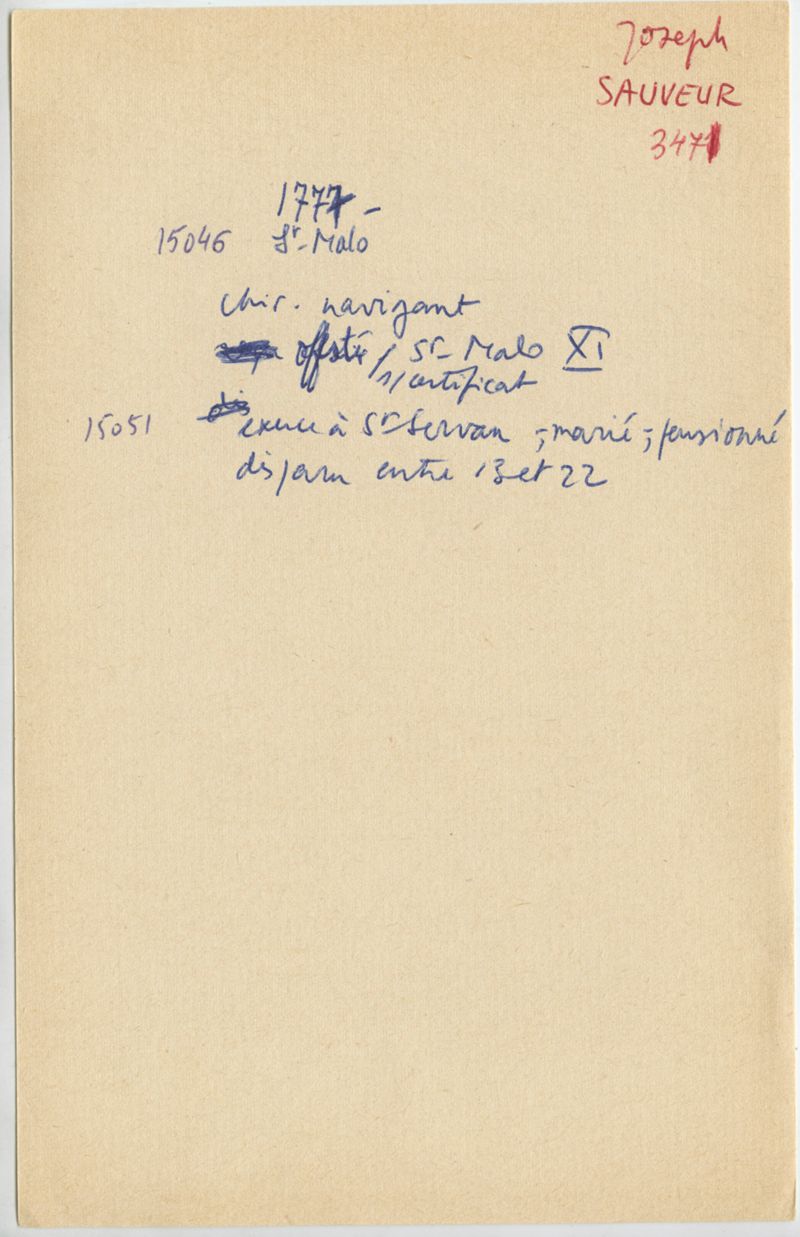 Joseph
SAUVEUR
3471
1777 -
15046 St-Malo
chir. navigant
/ St-Malo XI
s/certificat
15051 exerce à St Servan ; marié ; pensionné
disparu entre 13 et 22